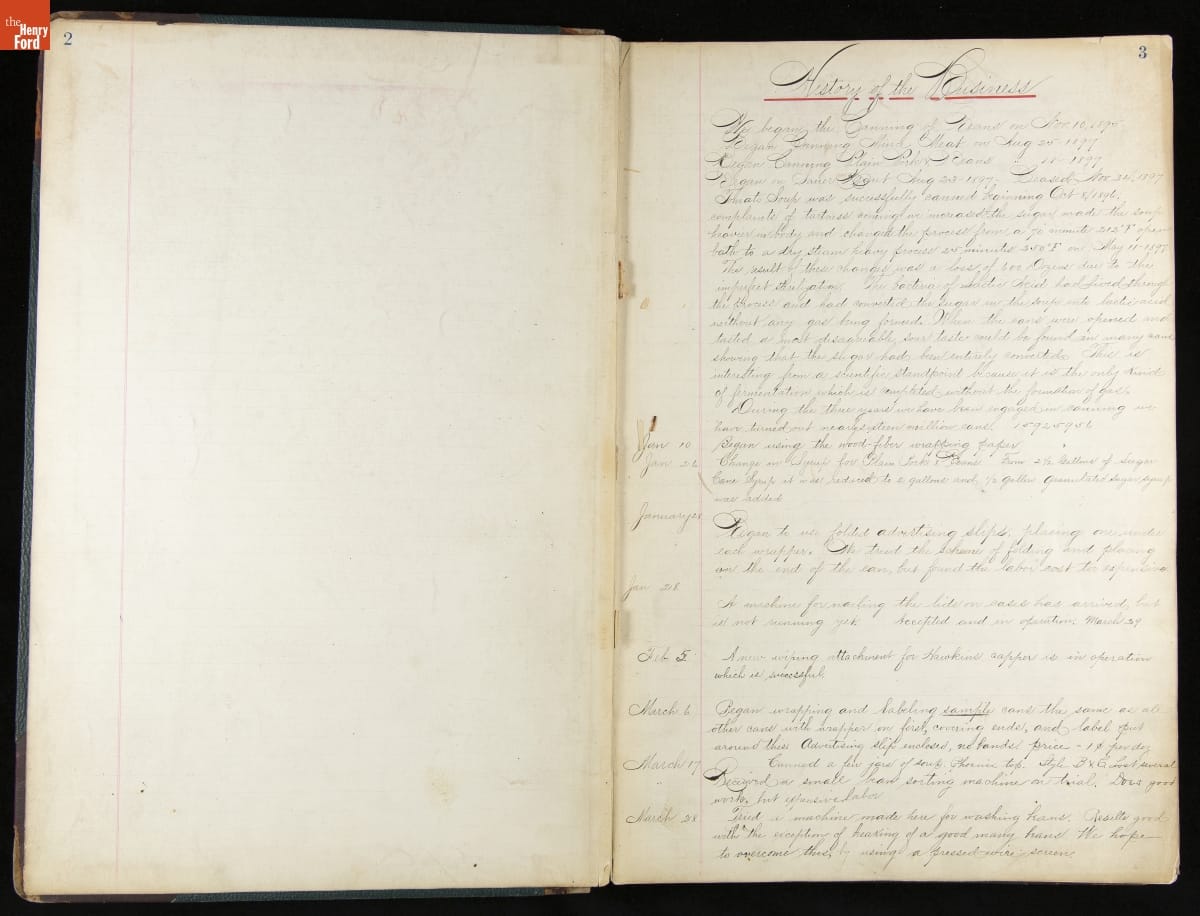 the
Henry
Ford
2
3
History of the Business
We began the Canning of Beans on Nov. 10, 1895
Began Canning Mince Meat on Aug 25-1897
Began Canning Plain Pork & Beans " 11-1897
Began on Sauer Kraut Aug 23-1897. Ceased Nov. 24, 1897
Tomato Soup was successfully canned beginning Oct 8/1896.
complaints of tartness coming we increased the sugar made the soup
heavier in body and changed the process from a 70 minute 212°F open
bath to a dry steam heavy process 25 minutes 250°F on May 11-1897
The result of these changes was a loss of 600 Dozens due to the
imperfect sterilization. The bacteria of Lactic Acid had lived through
the process and had converted the sugar in the soup into lactic acid
without any gas being formed. When the cans were opened and
tasted a most disagreeable, sour taste could be found in many cans
showing that the sugar had been entirely converted. This is
interesting from a scientific standpoint because it is the only kind
of fermentation which is completed without the formation of gas.
During the three years we have been engaged in canning we
have turned out nearly sixteen million cans. 15925956
Jan 10 Began using the wood-fiber wrapping paper
Jan 26 Change in Syrup for Plain Pork & Beans From 2½ Gallons of Sugar
Cane Syrup it was reduced to 2 gallons and ½ gallon granulated sugar syrup
was added
January 28 Began to use folded advertising slips, placing one under
each wrapper. We tried the scheme of folding and placing
on the end of the can, but found the labor cost too expensive.
Jan 28
A machine for nailing the lids on cases has arrived, but
is not running yet. Accepted and in operation. March 29
Feb 5 A new wiping attachment for Hawkins capper is in operation
which is successful.
March 6 Began wrapping and labeling sample cans the same as all
other cans with wrapper on first, covering ends, and label put
around this. Advertising slip enclosed, no bands price - 1¢ per doz
March 17 Canned a few jars of soup. Phoenix top. Style B & C. Lost several
Received a small bean sorting machine on trial. Does good
work, but expensive labor
March 28 Tried a machine made here for washing beans. Results good
with the exception of of a good many beans We hope
to overcome this, by using a pressed wire screen.